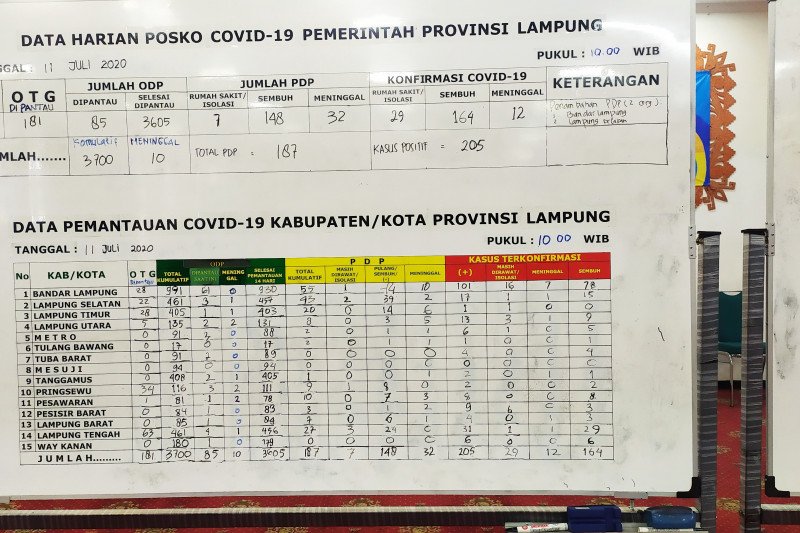 DATA HARIAN POSKO COVID-19 PEMERINTAH PROVINSI LAMPUNG
GGAL : 11 JULI 2020 PUKUL : 10.00 WIB
O T G JUMLAH ODP JUMLAH PDP KONFIRMASI COVID-19 KETERANGAN
DIPANTAU DIPANTAU SELESAI DIPANTAU RUMAH SAKIT/ISOLASI SEMBUH MENINGGAL RUMAH SAKIT/ISOLASI SEMBUH MENINGGAL
181 85 3605 7 148 32 29 164 12 PDP (2 org)
1 Bandar Lampung
2 Lampung Selatan
MLAH....... Komulatif MENINGGAL
3700 10 TOTAL PDP = 187 KASUS POSITIF = 205
DATA PEMANTAUAN COVID-19 KABUPATEN/KOTA PROVINSI LAMPUNG
TANGGAL : 11 JULI 2020 PUKUL : 10 00 WIB
No KAB/KOTA O T G ODP P D P KASUS TERKONFIRMASI
TOTAL KUMULATIF DIPANTAU SAAT INI MENINGGAL SELESAI PEMANTAUAN 14 HARI TOTAL KUMULATIF MASIH DIRAWAT/ISOLASI PULANG/SEMBUH/ MENINGGAL (+) MASIH DIRAWAT/ISOLASI MENINGGAL SEMBUH
1 BANDAR LAMPUNG 28 991 61 0 930 55 1 10 101 16 7 78
2 LAMPUNG SELATAN 22 461 3 1 457 43 2 39 2 17 1 1 15
3 LAMPUNG TIMUR 28 405 1 1 403 20 0 14 6 1 1 0 0
4 LAMPUNG UTARA 5 135 2 2 131 8 0 3 5 13 3 1 9
5 M E T R O 0 91 0 88 2 0 1 1 6 1 0 5
6 TULANG BAWANG 0 17 0 0 17 2 0 1 1 1 0 0 1
7 TUBA BARAT 0 91 2 0 89 0 0 0 0 4 0 0 4
8 M E S U J I 0 94 0 0 94 0 0 0 0 0 0 0 0
9 TANGGAMUS 0 408 2 1 405 1 0 0 1 2 0 1 1
10 PRINGSEWU 34 116 3 2 111 9 1 8 0 2 0 0 2
11 PESAWARAN 1 81 1 2 78 10 0 7 3 8 0 0 8
12 PESISIR BARAT 0 84 1 0 83 3 0 1 2 9 6 0 3
13 LAMPUNG BARAT 0 85 1 0 84 7 0 6 1 4 0 1 3
14 LAMPUNG TENGAH 63 461 4 1 456 27 3 24 0 31 1 1 29
15 WAY KANAN 0 180 1 0 179 0 0 0 0 6 0 0 6
J U M L A H......... 181 3700 85 10 3605 187 7 148 32 205 29 12 164